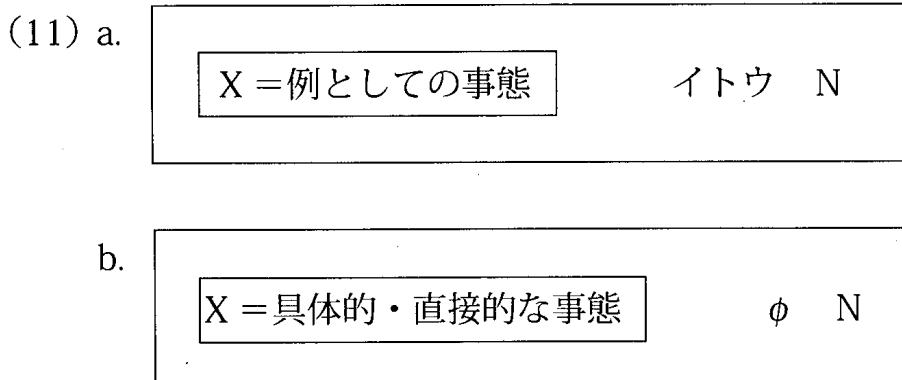 (11) a.
X＝例としての事態 イトウ N
b.
X＝具体的・直接的な事態 φ N